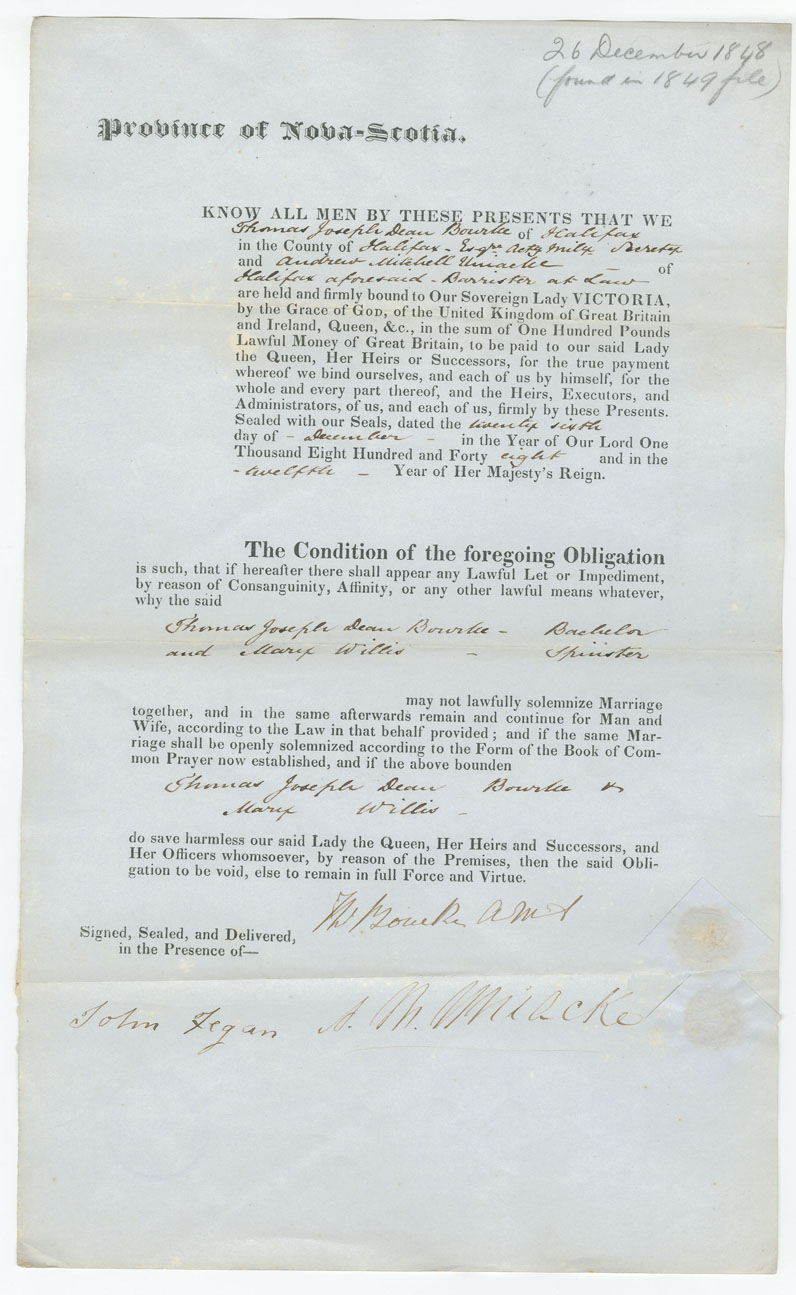 26 December 1848
(found in 1849 file)
Province of Nova-Scotia.
KNOW ALL MEN BY THESE PRESENTS THAT WE
Thomas Joseph Dean Bourke of Halifax
in the County of Halifax - Esqre Actg Mily Secrety
and Andrew Mitchell Uniacke - of
Halifax aforesaid - Barrister at Law
are held and firmly bound to Our Sovereign Lady VICTORIA,
by the Grace of GOD, of the United Kingdom of Great Britain
and Ireland, Queen, &c., in the sum of One Hundred Pounds
Lawful Money of Great Britain, to be paid to our said Lady
the Queen, Her Heirs or Successors, for the true payment
whereof we bind ourselves, and each of us by himself, for the
whole and every part thereof, and the Heirs, Executors, and
Administrators, of us, and each of us, firmly by these Presents.
Sealed with our Seals, dated the twenty sixth
day of - December - in the Year of Our Lord One
Thousand Eight Hundred and Forty eight and in the
- twelfth - Year of Her Majesty's Reign.
The Condition of the foregoing Obligation
is such, that if hereafter there shall appear any Lawful Let or Impediment,
by reason of Consanguinity, Affinity, or any other lawful means whatever,
why the said
Thomas Joseph Dean Bourke - Bachelor
and Mary Willis - Spinster
may not lawfully solemnize Marriage
together, and in the same afterwards remain and continue for Man and
Wife, according to the Law in that behalf provided; and if the same Mar-
riage shall be openly solemnized according to the Form of the Book of Com-
mon Prayer now established, and if the above bounden
Thomas Joseph Dean Bourke &
Mary Willis -
do save harmless our said Lady the Queen, Her Heirs and Successors, and
Her Officers whomsoever, by reason of the Premises, then the said Obli-
gation to be void, else to remain in full Force and Virtue.
Ths Bourke
Signed, Sealed, and Delivered,
in the Presence of—
John Fegan A. M. Uniacke